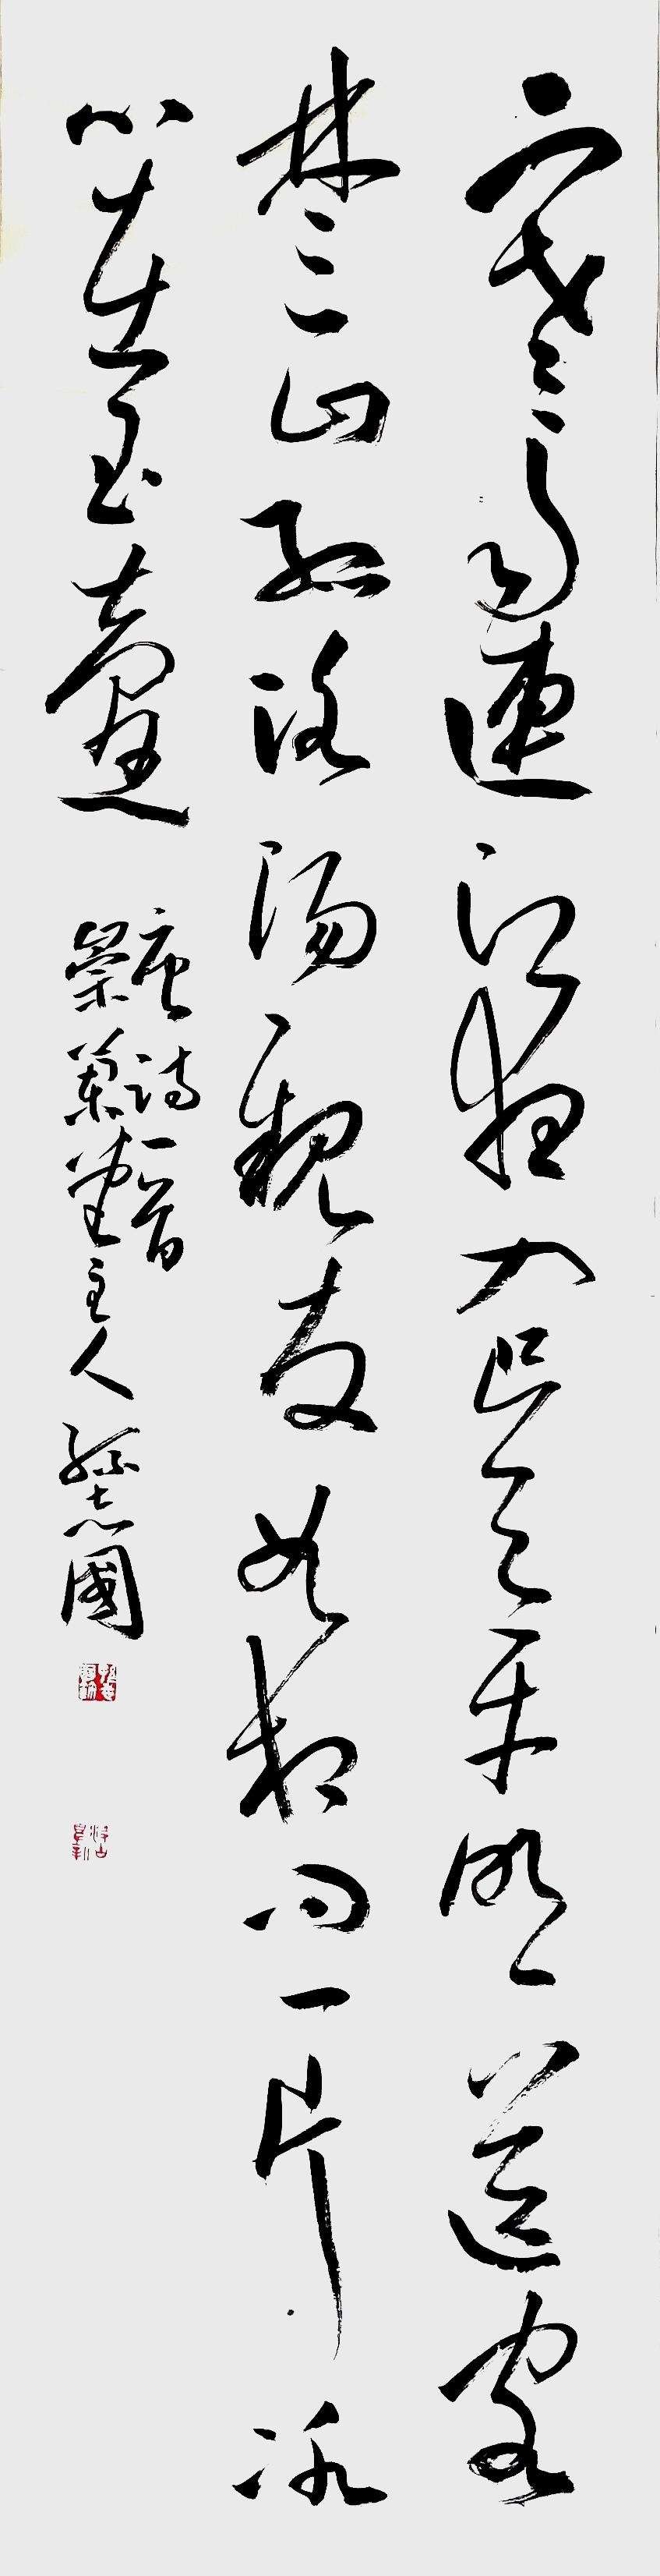 寒雨連江夜入吳平明送客
楚山孤洛陽親友如相問一片冰
心在玉壺
唐詩一首
蘭堂主人孫志國